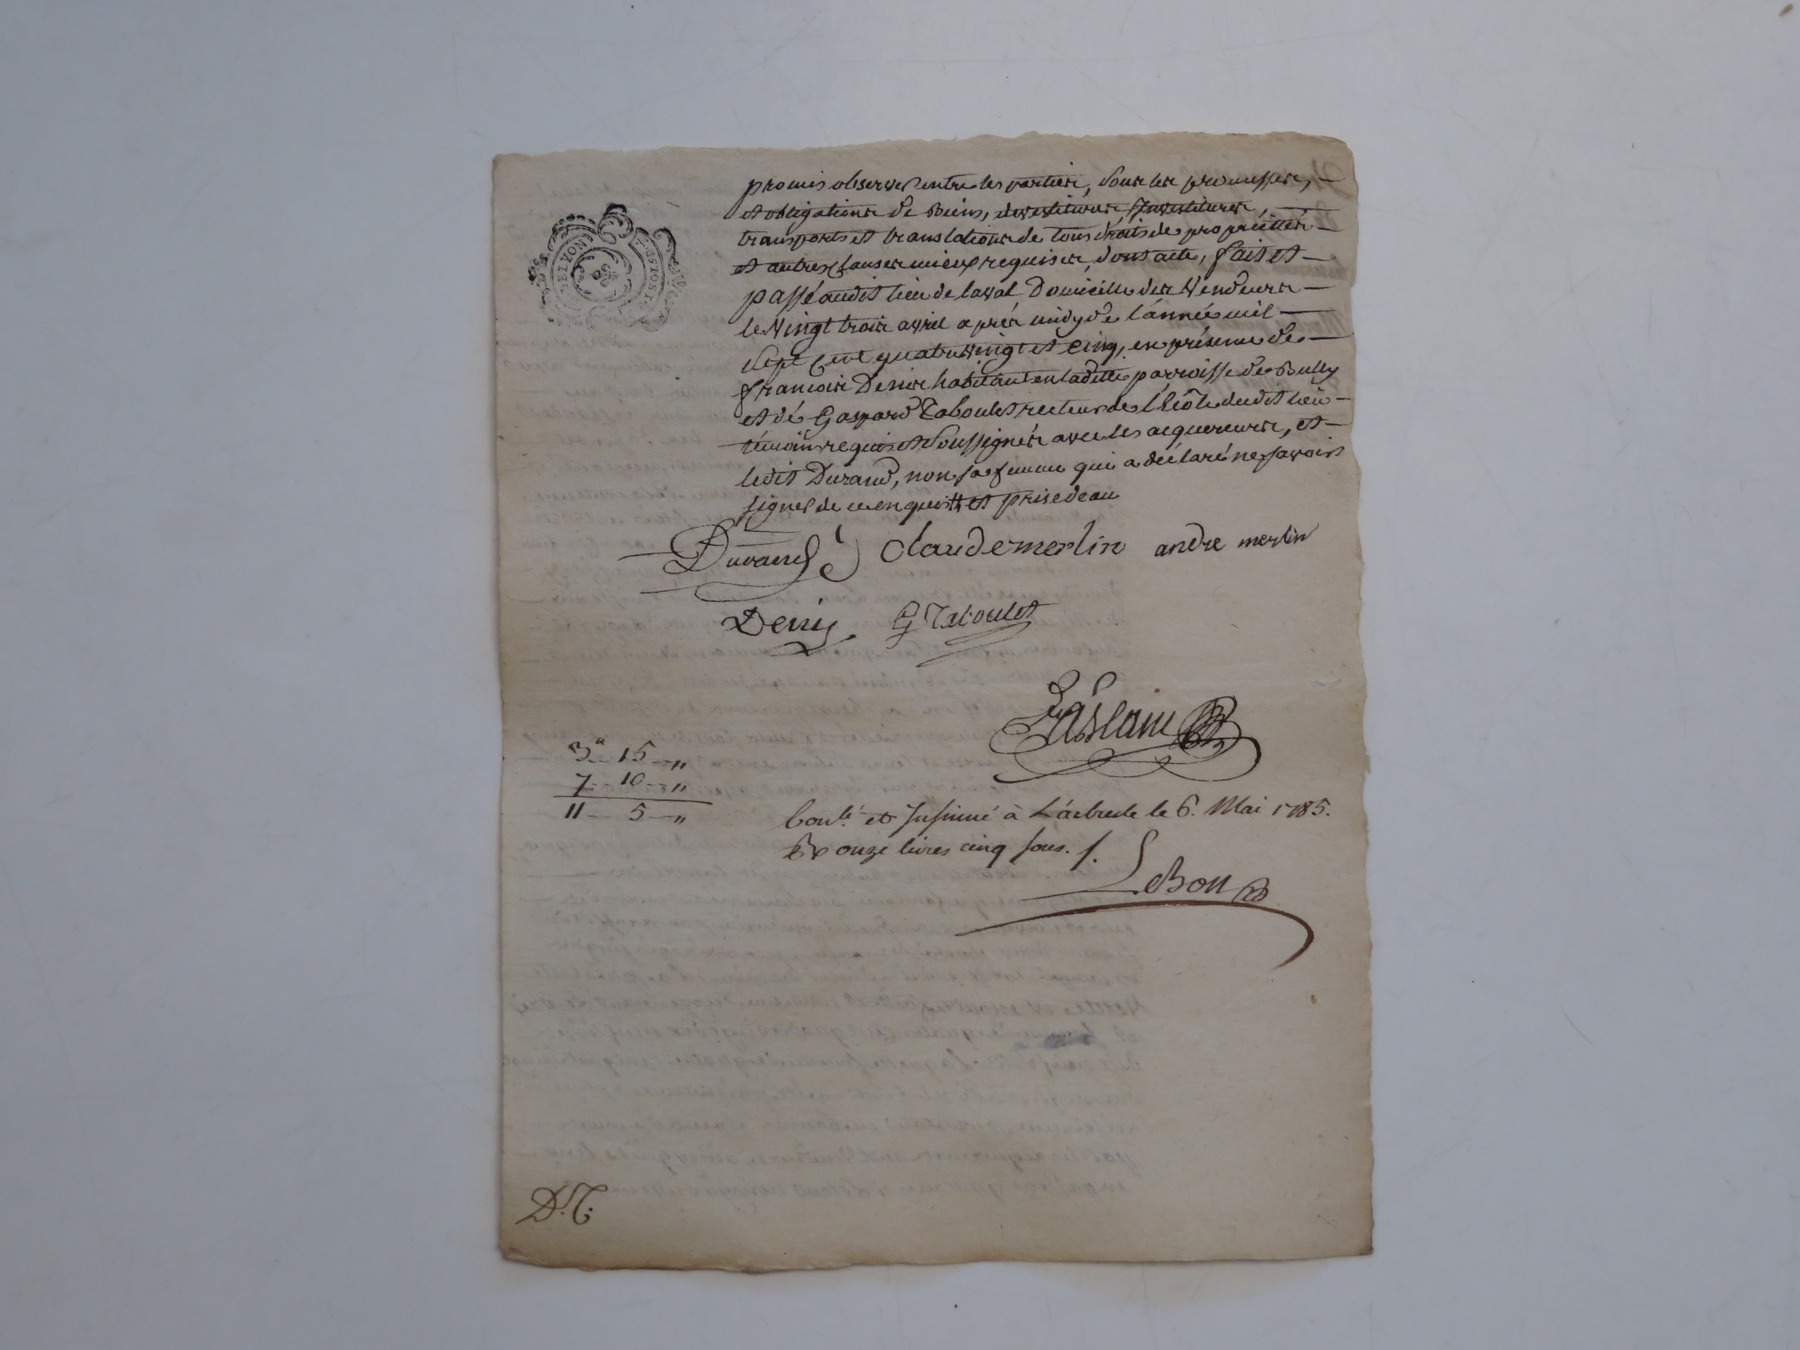 promis observer entre les parties, sous les promesses,
et obligations de Biens, devestitures, Investitures,
transports et translations de tous droits de propriétés
et autres clauses mieux requises, dont acte, fait et
passé audit lieu de laval Domicille des Vendeurs
le Vingt trois avril après midy de l'année mil
sept cent quatre Vingt et cinq, en présence de
francois Denis habitant en ladite parroisse de Bully
et de Gaspard Taboulet recteur de l'Ecôle dudit lieu
témoins requis et Soussignés avec les acquereurs, et
ledit Durand, non sa femme qui a déclaré ne savoir
signer de ce enquise et prise deau
Durand claude merlin andre merlin
Denis G Taboulet
3# 15 "
7 10 "
11 5 "
Con.lé et Insinué à L'arbresle le 6. Mai 1785.
R onze livres cinq sous.
LeBon
D.T.
DE LYON